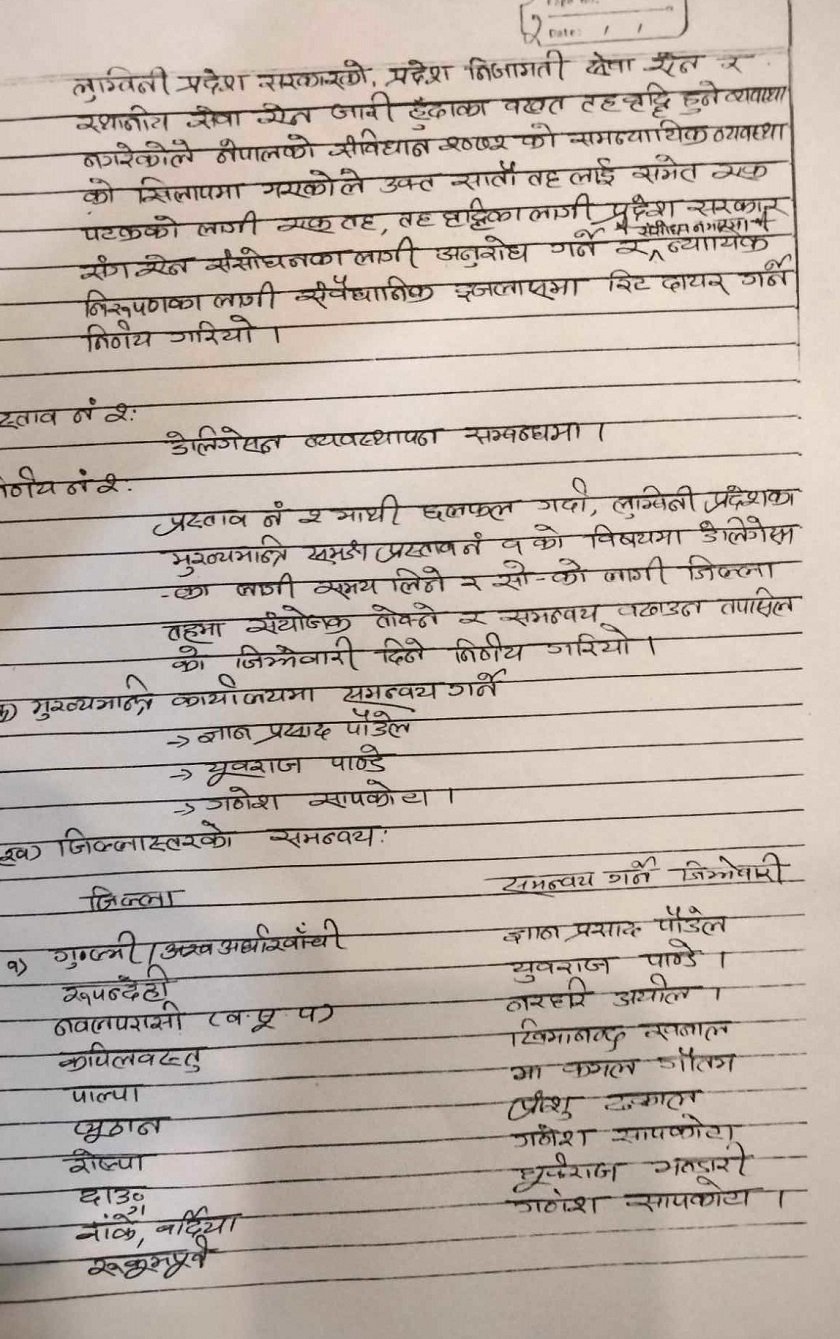 २ Date: / /
लुम्विनी प्रदेश सरकारको, प्रदेश निजामती सेवा ऐन र
स्थानीय सेवा ऐन जारी हुँदाका वखत तह वृद्धि हुने व्यवस्था
नगरेकोले नेपालको संविधान २०७२ को समन्यायिक व्यवस्था
को खिलापमा गएकोले उक्त सातौं तह लाई समेत एक
पटकको लागी एक तह, तह वृद्धिका लागी प्रदेश सरकार
संग ऐन संसोधनका लागी अनुरोध गर्ने र न्यायिक
निरूपणका लागी संवैधानिक इजलासमा रिट दायर गर्ने
निर्णय गरियो ।
स्ताव नं २:
डेलिगेसन व्यवस्थापन सम्वन्धमा ।
र्णय नं २:
प्रस्ताव नं २ माथी छलफल गर्दा, लुम्विनी प्रदेशका
मुख्यमान्त्रि समक्ष प्रस्ताव नं १ को विषयमा डेलिगेस
-का लागी समय लिने र सो-को लागी जिल्ला
तहमा संयोजक तोक्ने र समन्वय वढाउन तपासिल
को जिम्मेवारी दिने निर्णय गरियो ।
क) मुख्यमान्त्रि कार्यालयमा समन्वय गर्ने
→ ज्ञान प्रसाद पौडेल
→ यूवराज पाण्डे
→ गणेश सापकोटा ।
ख) जिल्लास्तरको समन्वय:
जिल्ला समन्वय गर्ने जिम्मेवारी
१) गुल्मी / अर्घाखाँची ज्ञान प्रसाद पौडेल
रूपन्देही युवराज पाण्डे ।
नवलपरासी (व.सू प) नरहरि अर्याल ।
कपिलवस्तु खिमानन्द खनाल
पाल्पा कमल गौतम
प्यूठान ढकाल
रोल्पा गणेश सापकोटा
दाङ भण्डारी
बांके, बर्दिया गणेश सापकोटा ।
रूकुमपूर्व